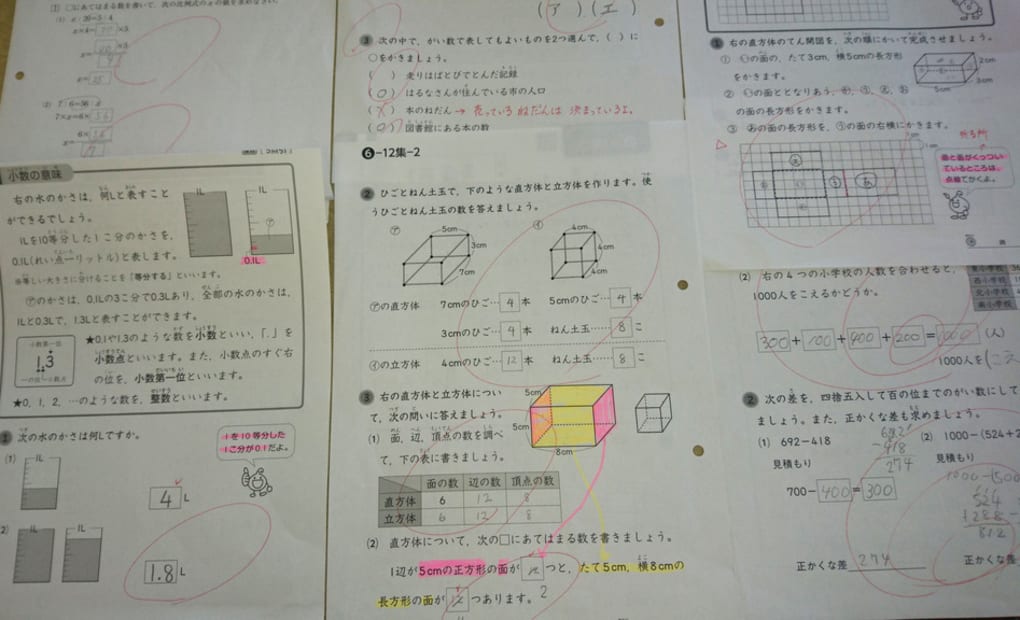 □にあてはまる数を書いて、次の比例式のxの数を求めなさい。
(1)
(2) 7:6=56:x
7×x=6×56
(ア)(エ)
3 次の中で、がい数で表してもよいものを2つ選んで、( )に
○をかきましょう。
( ) 走りはばとびでとんだ記録
(○) はるなさんが住んでいる市の人口
( ) 本のねだん → 売っているねだんは決まっているよ。
(○) 図書館にある本の数
1 右の直方体のてん開図を、次の順にかいて完成させましょう。
① ○いの面の、たて3cm、横5cmの長方形
をかきます。
の面の長方形をかきます。
③ ○あの面の長方形を、○うの面の右横にかきます。
2cm
3cm
5cm
1cm
折る所
面と面がくっつい
ているところは、
点線でかくよ。
小数の意味
右の水のかさは、何Lと表すこと
ができるでしょう。
1Lを10等分した1こ分のかさを、
0.1L(れい点一リットル)と表します。
※等しい大きさに分けることを「等分する」といいます。
㋐のかさは、0.1Lの3こ分で0.3Lあり、全部の水のかさは、
1Lと0.3Lで、1.3Lと表すことができます。
1L
1L
㋐
0.1L
小数第一位
1.3
一の位
小数点
★0.1や1.3のような数を小数といい、「.」を
小数点といいます。また、小数点のすぐ右
の位を、小数第一位といいます。
★0、1、2、…のような数を、整数といいます。
1 次の水のかさは何Lですか。
1を10等分した
1こ分が0.1だよ。
(1)
1L
4 L
2)
1L
1L
1.8 L
6-12集-2
2 ひごとねん土玉で、下のような直方体と立方体を作ります。使
うひごとねん土玉の数を答えましょう。
㋐
5cm
3cm
7cm
㋑
4cm
4cm
4cm
㋐の直方体 7cmのひご… 4 本 5cmのひご… 4 本
3cmのひご… 4 本 ねん土玉…… 8 こ
㋑の立方体 4cmのひご… 12 本 ねん土玉…… 8 こ
3 右の直方体と立方体につい
て、次の問いに答えましょう。
5cm
5cm
8cm
(1) 面、辺、頂点の数を調べ
て、下の表に書きましょう。
面の数 辺の数 頂点の数
直方体 6 12 8
立方体 6 12 8
(2) 直方体について、次の□にあてはまる数を書きましょう。
1辺が5cmの正方形の面が つと、たて5cm、横8cmの
長方形の面が つあります。
2
(2) 右の4つの小学校の人数を合わせると、
1000人をこえるかどうか。
東小学校
西小学校
北小学校
南小学校
300+100+400+200=1000 (人)
1000人を(こえ
2 次の差を、四捨五入して百の位までのがい数にして
ましょう。また、正かくな差も求めましょう。
(1) 692-418
692
-418
274
(2) 1000-(524+2
見積もり
700-400=300
見積もり
1000-(500
524
+288
812
正かくな差 274
正かくな差